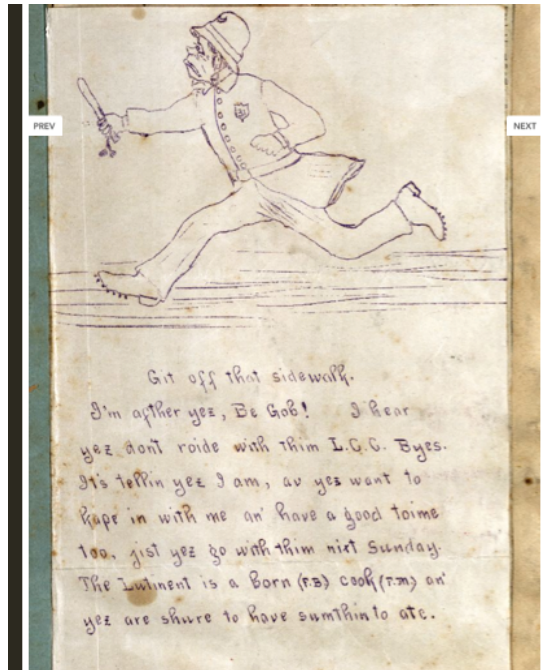 PREV
NEXT
Git off that sidewalk.
I'm afther yez, Be Gob! I hear
yez dont roide with thim L.C.C. Byes.
It's tellin yez I am, av yez want to
kape in with me an' have a good toime
too, jist yez go with thim nixt Sunday.
The Lutinent is a Born (F.B) Cook (F.M) an'
yez are shure to have sumthin to ate.